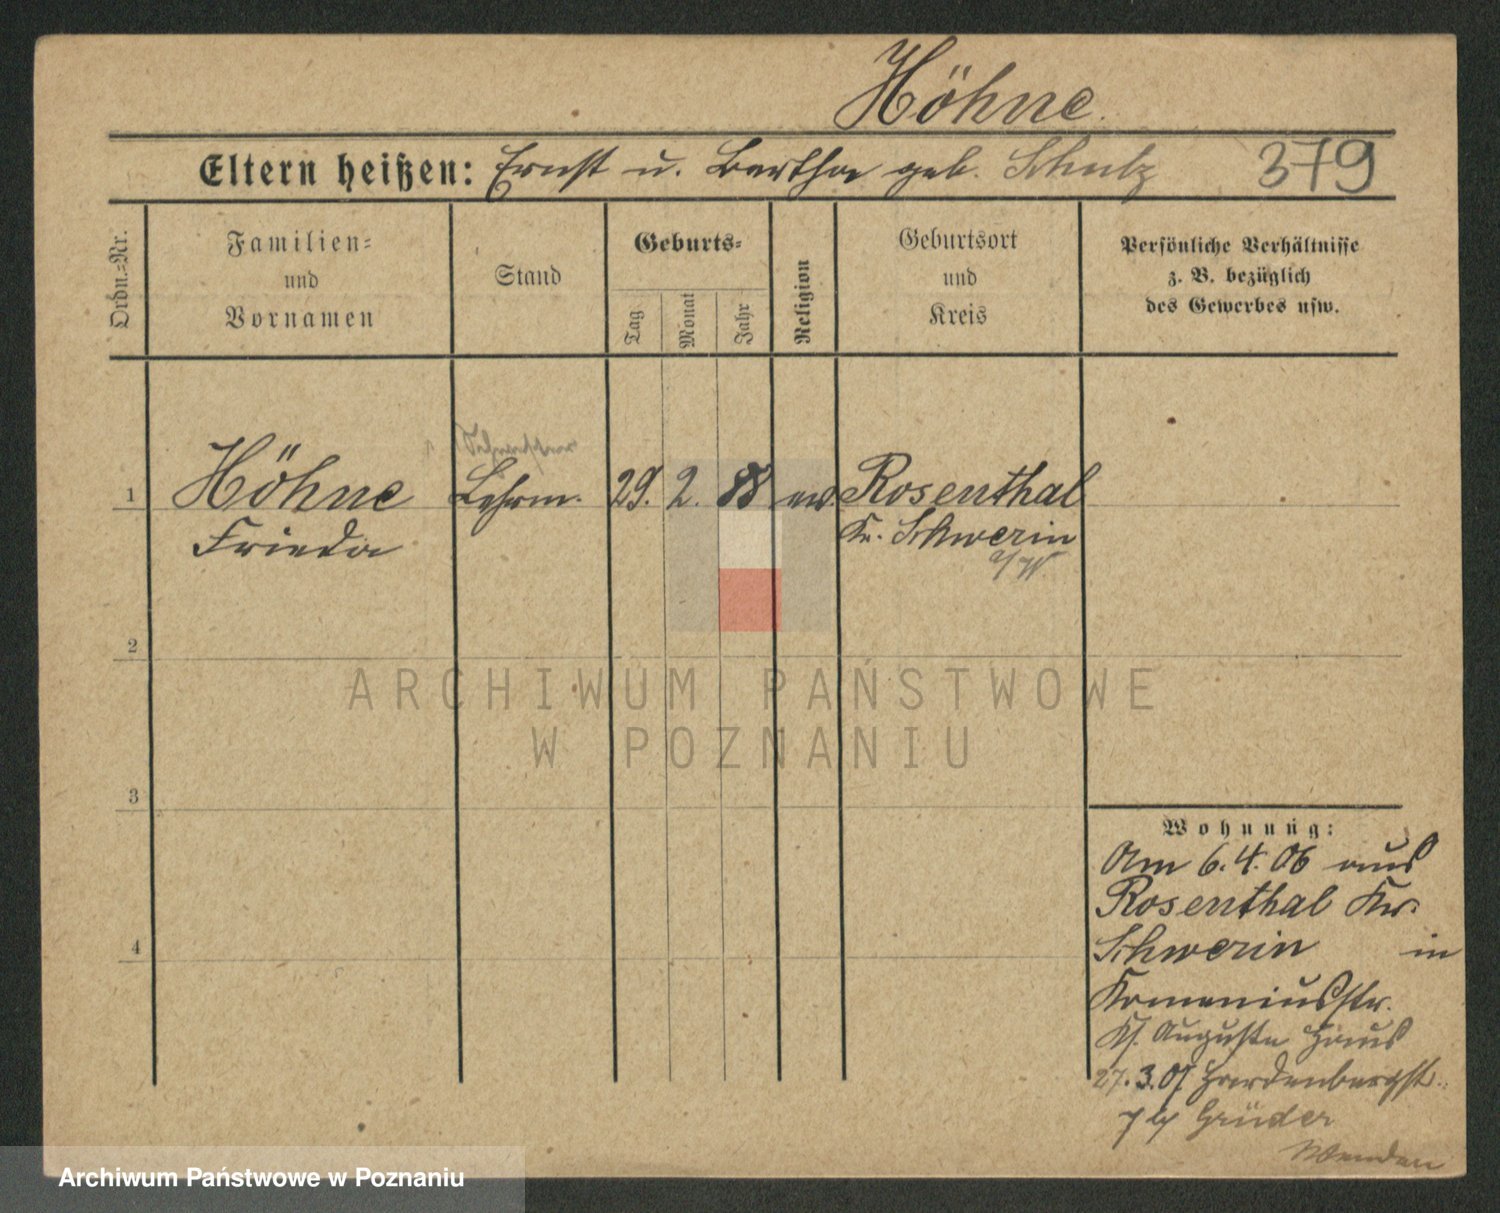 Höhne
Eltern heißen: Ernst u. Bertha geb. Schulz 379
Ordn.=Nr.
Familien=
und
Vornamen
Stand
Geburts=
Tag
Monat
Jahr
Religion
Geburtsort
und
Kreis
Persönliche Verhältnisse
z. B. bezüglich
des Gewerbes usw.
1 Höhne Lehrm. 29. 2. 88 ev. Rosenthal
Frieda Kr. Schwerin
a/W
2
3
4
Wohnung:
Am 6.4.06 aus
Rosenthal Kr.
Schwerin in
Komeniusstr.
Ks. Augusta Haus
27.3.07 Hardenbergstr.
7 b/ Grüder
ARCHIWUM PAŃSTWOWE
W POZNANIU
Archiwum Państwowe w Poznaniu